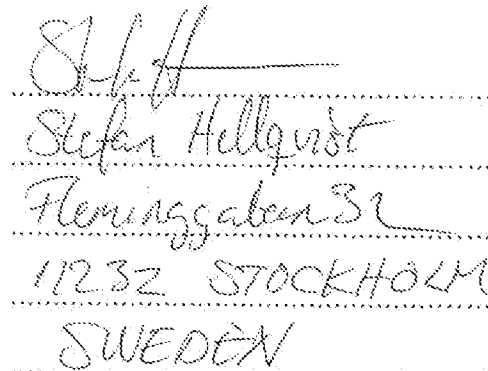 Stefan Hellqvist
Fleminggatan 32
11232 STOCKHOLM
SWEDEN